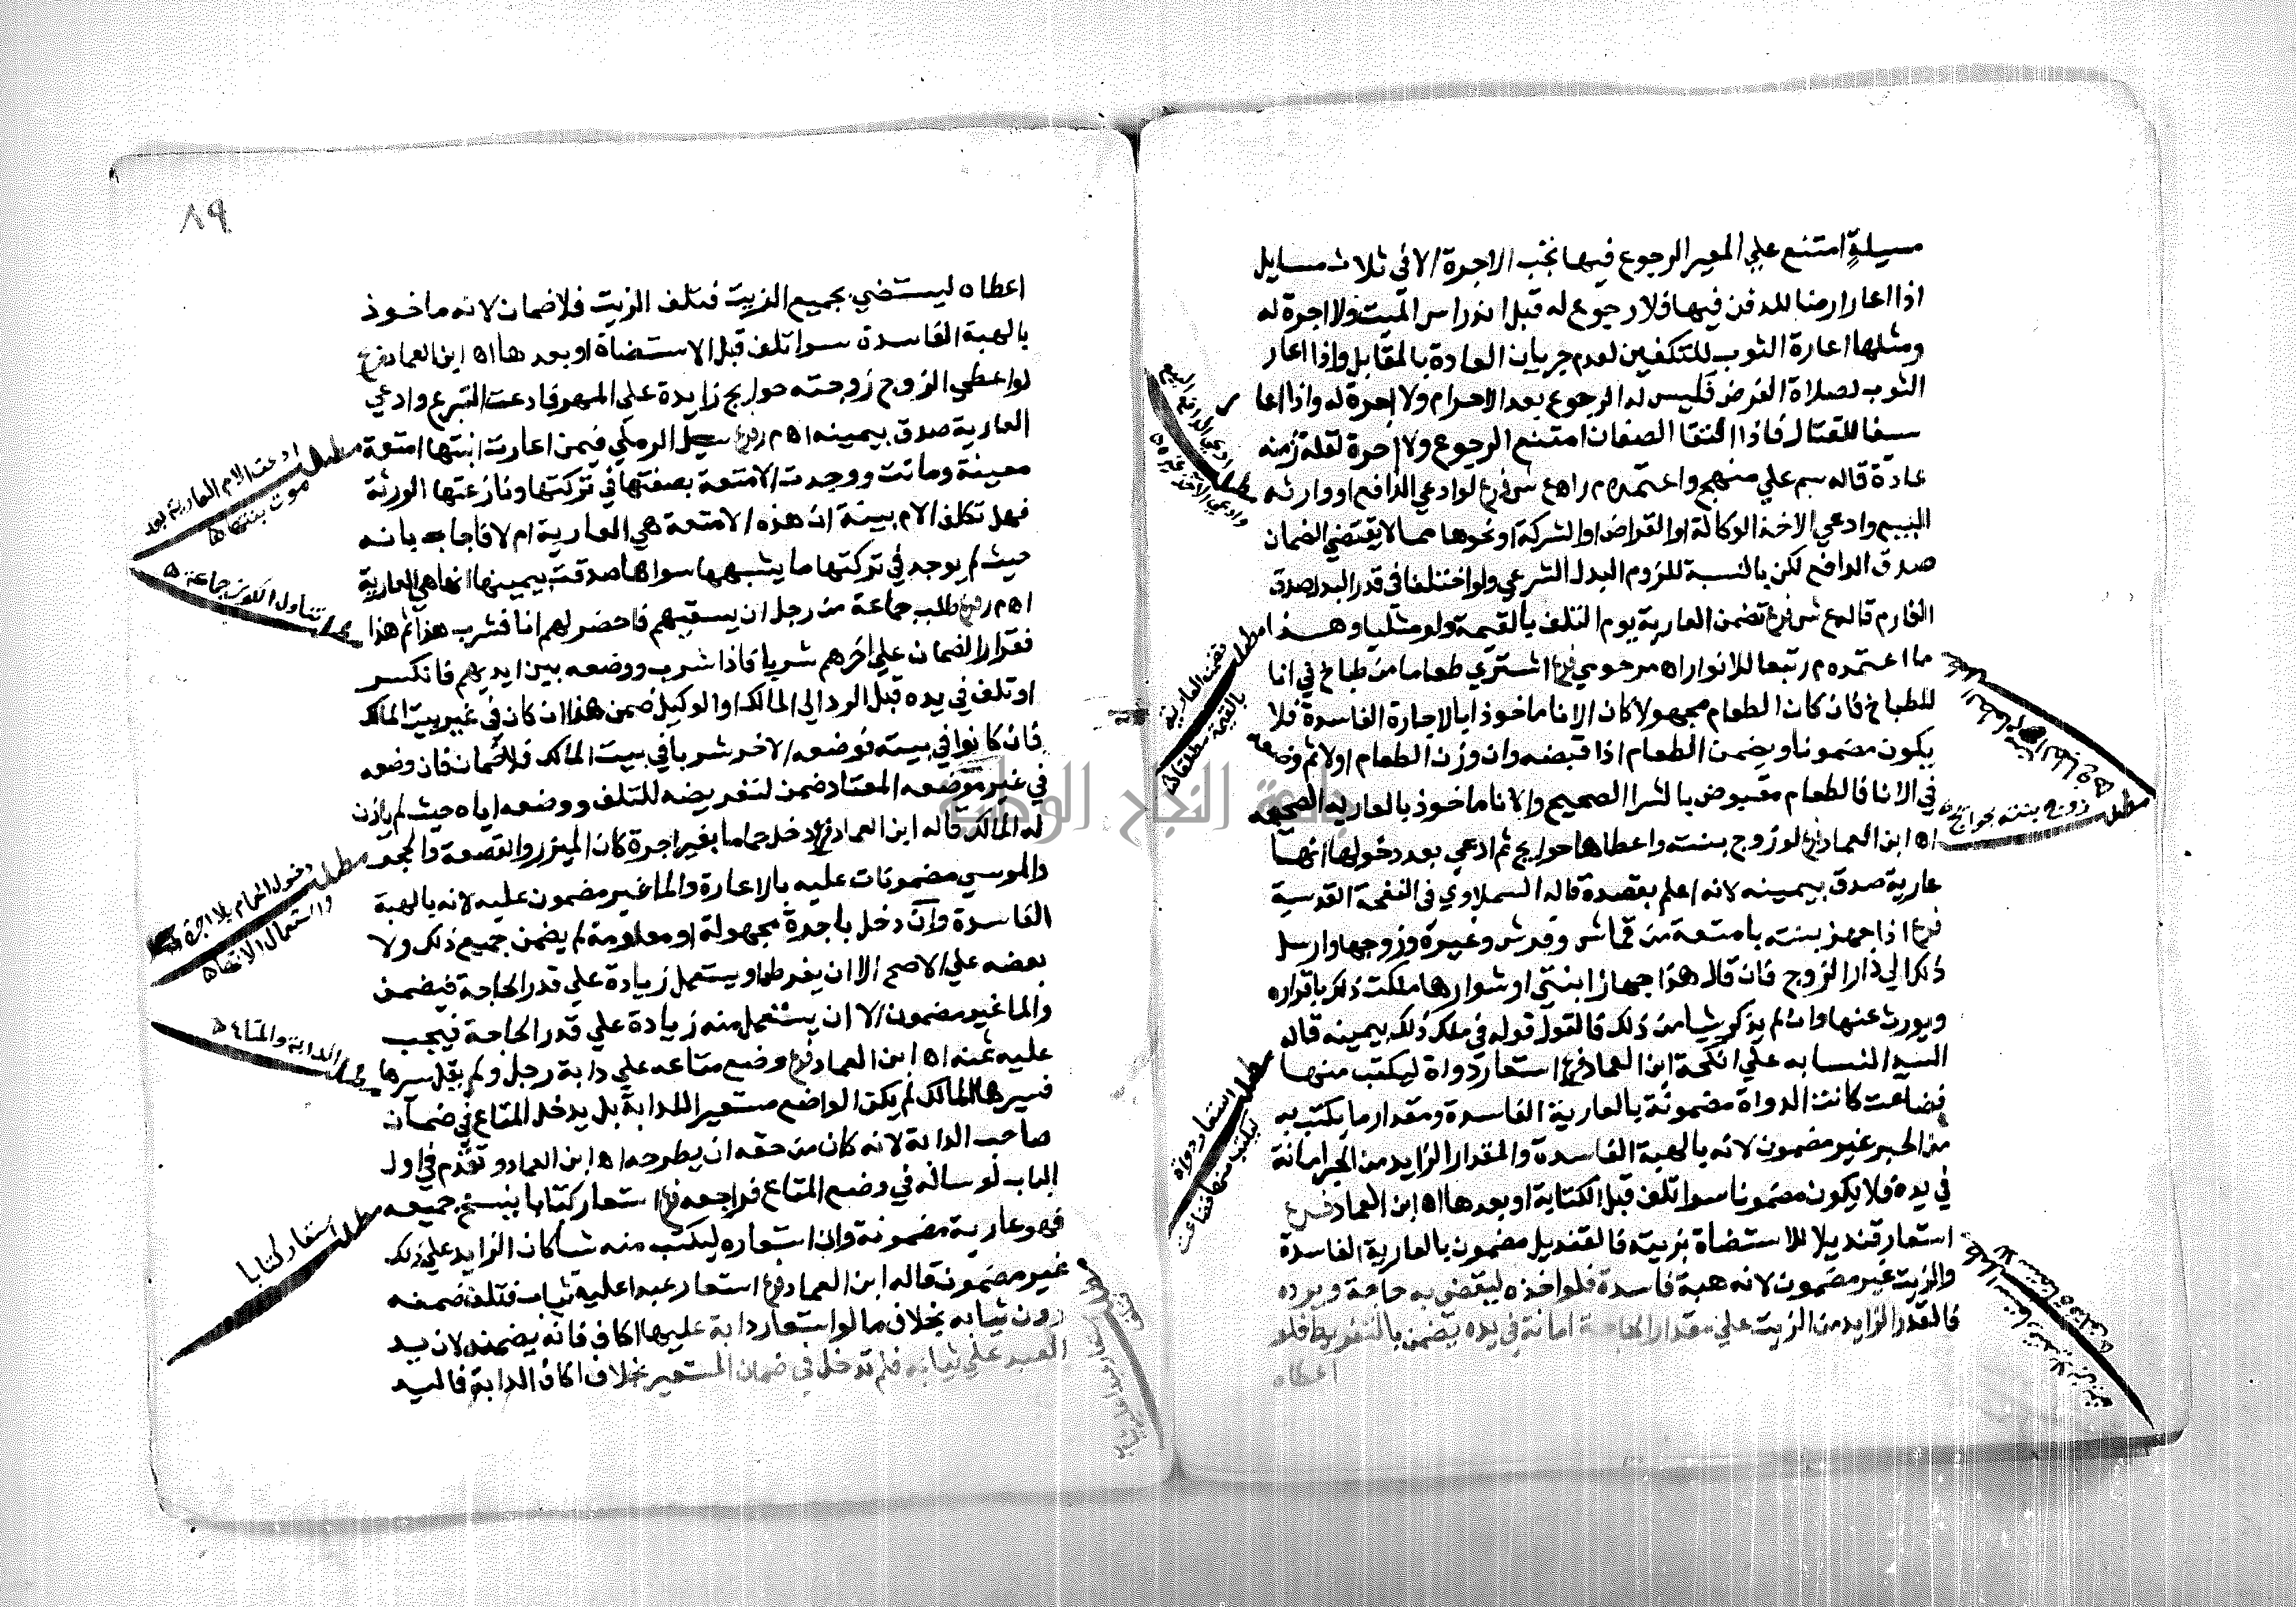 مسيلة امتنع علي المعير الرجوع فيها تجب الاجرة الا في ثلاث مسايل
اذا اعار ارضا للدفن فيها فلا رجوع له قبل اندراس الميت ولا اجرة له
ومثلها اعارة الثوب للتكفين لعدم جريان العادة بالمقابل واذا اعار
الثوب لصلاة الفرض فليس له الرجوع بعد الاحرام ولا اجرة له واذا اعار
سيفا للقتال فاذا التقا الصفان امتنع الرجوع ولا اجرة لقلة زمنه
عادة قاله سم علي منهج واعتمده م ر اه ع ش فرع لوادعي الدافع او وارثه
البيع وادعي الاخذ الوكالة او القراض او الشركة او نحوها مما لا يقتضي الضمان
صدق الدافع لكن بالنسبة للزوم البدل الشرعي ولو اختلفا في قدر البدل صدق
الغارم قاله ع ش فرع تضمن العارية يوم التلف بالقيمة ولو مثليا وهذا
ما اعتمده م ر تبعا للانوار اه مرحومي فرع اشتري طعاما من طباخ في انا
للطباخ فان كان الطعام مجهولا كان الانا ماخوذا بالاجارة الفاسدة فلا
يكون مضمونا ويضمن الطعام اذا قبضه وان وزن الطعام اولا ثم وضعه
في الانا فالطعام مقبوض بالشرا الصحيح والانا ماخوذ بالعارية الصحيحة
اه ابن العماد فرع لو زوج بنته واعطاها حوايج ثم ادعي بعد دخولها انها
عارية صدق بيمينه لانه اعلم بقصده قاله السملاوي في النفحة القدسية
فرع اذا جهز بنته بامتعة من قماش وفرش وغيره وزوجها وارسل
ذلك الي دار الزوج فان قال هذا جهاز ابنتي او شوارها ملكت ذلك باقراره
ويورث عنها وان لم يذكر شيا من ذلك فالقول قوله في ملك ذلك بيمينه قاله
السيد النسابه علي انكحة ابن العماد فرع استعار دواة ليكتب منها
فضاعت كانت الدواة مضمونة بالعارية الفاسدة ومقدار ما يكتب به
من الحبر غير مضمون لانه بالهبة الفاسدة والمقدار الزايد من الحبر امانة
في يده فلا يكون مضمونا سوا تلف قبل الكتابة او بعدها اه ابن العماد فرع
استعار قنديلا للاستضاة بزيته فالقنديل مضمون بالعارية الفاسدة
والزيت غير مضمون لانه هبة فاسدة فلو اخذه ليقضي به حاجة ويرده
فالقدر الزايد من الزيت علي مقدار الحاجة امانة في يده يضمن بالتفريط فلو
اعطاه
ادعي الدافع البيع
وادعي الاخذ غيره
مطلب تضمن العارية
بالقيمة مطلقا
مطلب زوج بنته بحوايج
مطلب استعار دواة
ليكتب منها فضاعت
٨٩
اعطاه ليستضي بجميع الزيت فتلف الزيت فلا ضمان لانه ماخوذ
بالهبة الفاسدة سوا تلف قبل الاستضاة او بعدها اه ابن العماد فرع
لواعطي الزوج زوجته حوايج زايدة علي المهر فادعت التبرع وادعي
العارية صدق بيمينه اه م ر فرع سيل الرملي فيمن اعارت ابنتها امتعة
معينة وماتت ووجدت الامتعة بصفتها في تركتها ونازعتها الورثة
فهل تكلف الام بينة ان هذه الامتعة هي العارية ام لا فاجاب بانه
حيث لم يوجد في تركتها ما يشبهها سواها صدقت بيمينها انها هي العارية
اه م ر فرع طلب جماعة من رجل ان يسقيهم فاحضر لهم انا فشرب هذا ثم هذا
فقرار الضمان علي اخرهم شربا فاذا شرب ووضعه بين ايديهم فانكسر
او تلف في يده قبل الرد الي المالك او الوكيل ضمن هذا ان كان في غير بيت المالك
فان كانوا في بيته فوضعه الاخر شربا في بيت المالك فلا ضمان فان وضعه
في غير موضعه المعتاد ضمن لتعريضه للتلف ووضعه اياه حيث لم ياذن
له المالك قاله ابن العماد فرع دخل حماما بغير اجرة كان الميزر والقصعة والحجر
والموسي مضمونات عليه بالاعارة والما غير مضمون عليه لانه بالهبة
الفاسدة وان دخل باجرة مجهولة او معلومة لم يضمن جميع ذلك ولا
بعضه علي الاصح الا ان يفرط او يستعمل زيادة علي قدر الحاجة فيضمن
والما غير مضمون الا ان يستعمل منه زيادة علي قدر الحاجة فيجب
عليه ثمنه اه ابن العماد فرع وضع متاعه علي دابة رجل ولم يقل سرها
فسيرها المالك لم يكن الواضع مستعيرا للدابة بل يدخل المتاع في ضمان
صاحب الدابة لانه كان من حقه ان يطرحه اه ابن العماد وتقدم في اول
الباب لو ساله في وضع المتاع فراجعه فرع استعار كتابا ينسخ جميعه
فهو عارية مضمونة وان استعاره ليكتب منه شيا كان الزايد علي ذلك
غير مضمون قاله ابن العماد فرع استعار عبدا عليه ثياب فتلف ضمنه
دون ثيابه بخلاف ما لو استعار دابة عليها اكاف فانه يضمنه لان يد
العبد علي ثيابه فلم تدخل في ضمان المستعير بخلاف اكاف الدابة فاليد
مطلب ادعت الام العارية بعد
موت بنتها
مطلب تناول الكوز جماعة
مطلب دخول الحمام بلا اجرة
واستعمال الاتها
مطلب الدابة والمتاع
مطلب استعار كتابا
جامعة النجاح الوطنية